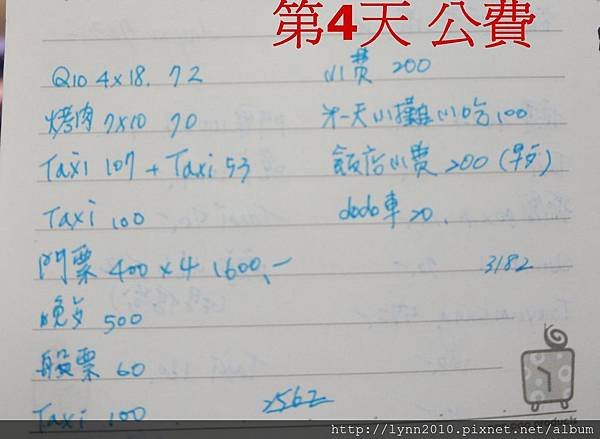 第4天 公費
Q10 4x18. 72
烤肉 7x10 70
Taxi 107 + Taxi 53
Taxi 100
門票 400 x 4 1600.-
晚歺 500
船票 60
Taxi 100
2562
小費 200
第一天小攤小吃 100
飯店小費 200 (早歺)
dodo車 20.
3182
http://lynn2010.pixnet.net/album